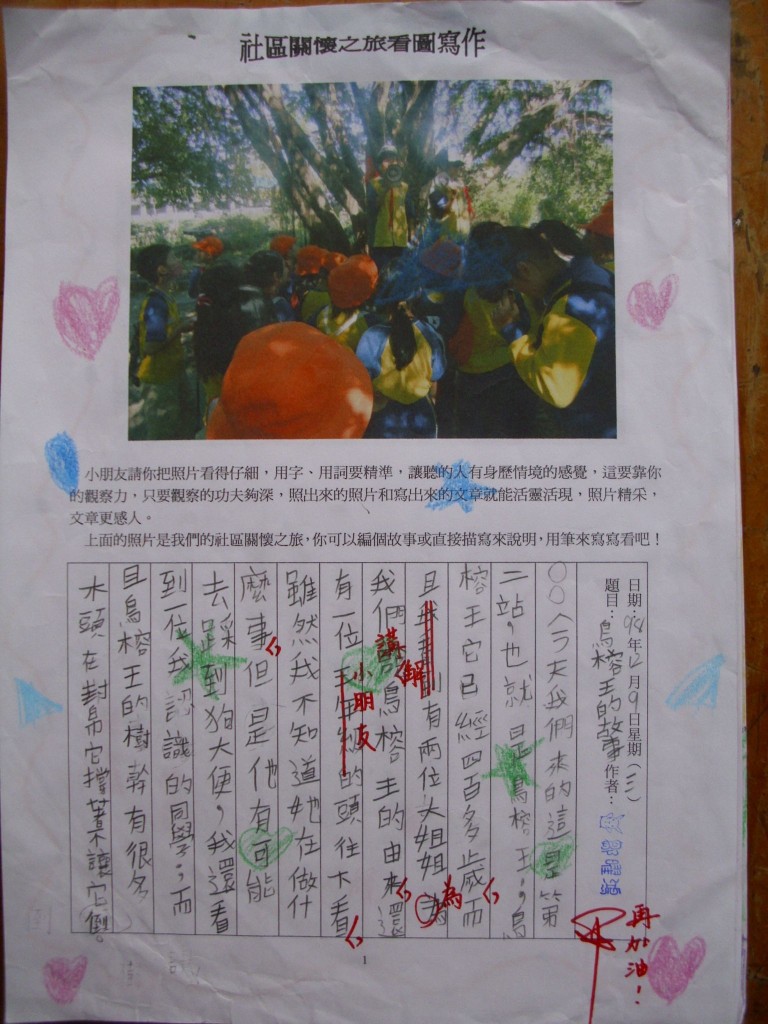 社區關懷之旅看圖寫作
小朋友請你把照片看得仔細，用字、用詞要精準，讓聽的人有身歷情境的感覺，這要靠你
的觀察力，只要觀察的功夫夠深，照出來的照片和寫出來的文章就能活靈活現，照片精采，
文章更感人。
上面的照片是我們的社區關懷之旅，你可以編個故事或直接描寫來說明，用筆來寫寫看吧！
日期：98年12月9日星期（三）
題目：鳥榕王的故事 作者：
○○今天我們來的這是第
二站，也就是鳥榕王，鳥
榕王它已經四百多歲而
且 有兩位大姐姐為
我們講解鳥榕王的由來還
有一位小朋友的頭往下看
雖然我不知道她在做什
麼事但是他有可能
去踩到狗大便，我還看
到一位我認識的同學，而
且鳥榕王的樹幹有很多
木頭在對幫它撐著不讓它倒。
再加油！
1